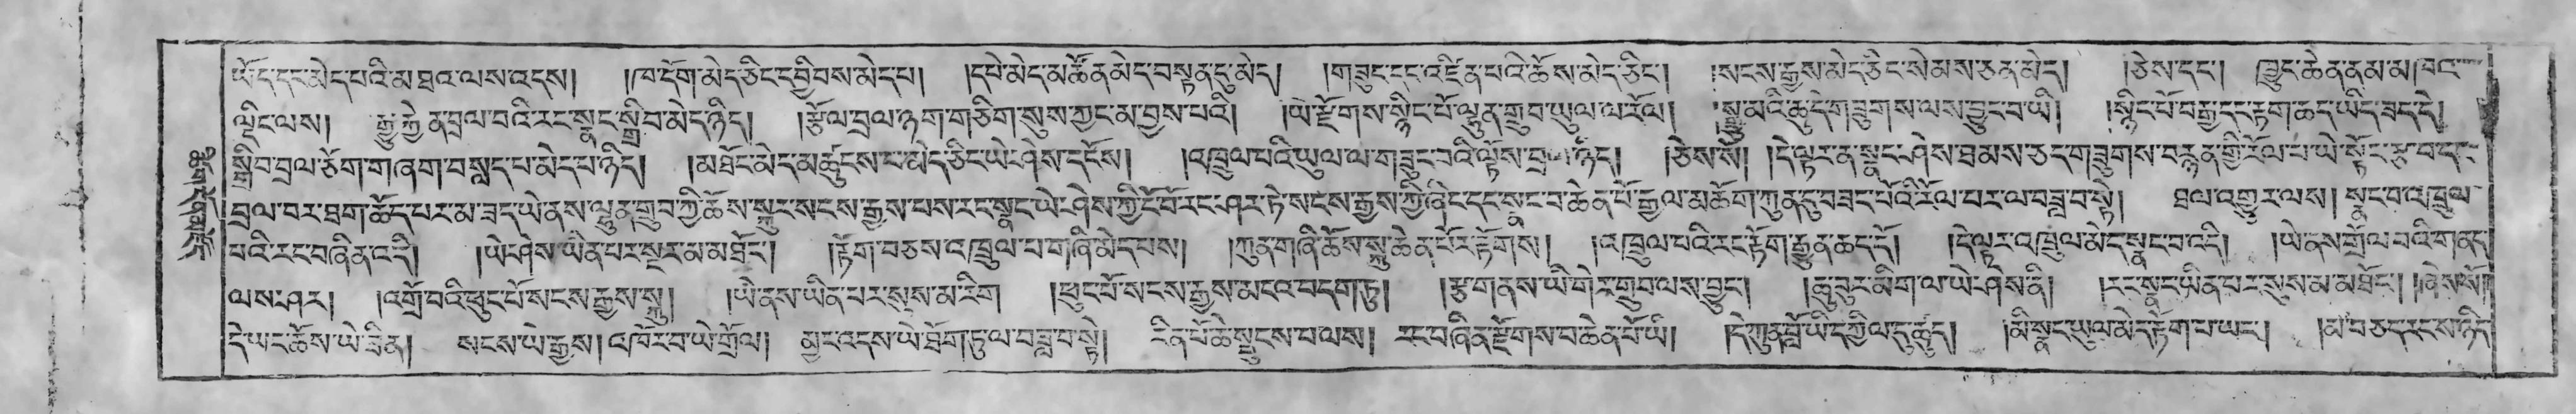 ཡོད་དང་མེད་པའི་མཐའ་ལས་འདས། །ཁ་དོག་མེད་ཅིང་དབྱིབས་མེད་པ། །དཔེ་མེད་མཚོན་མེད་བསྟན་དུ་མེད། །གཟུང་དང་འཛིན་པའི་ཆོས་མེད་ཅིང་། །སངས་རྒྱས་མེད་ཅིང་སེམས་ཅན་མེད། །ཅེས་དང་། ཁྱུང་ཆེན་ནམ་མཁའ་
ལྡིང་ལས། རྒྱུ་རྐྱེན་བྲལ་བའི་རང་སྣང་སྒྲིབ་མེད་ཉིད། །རྩོལ་བྲལ་ཉག་གཅིག་སུས་ཀྱང་མ་བྱས་པའི། །ཡེ་རྫོགས་སྙིང་པོ་ལྷུན་གྲུབ་ཡུལ་ལ་རོལ། །སྒྱུ་མའི་ཆུ་དེ་གཟུགས་ལས་བྱུང་བ་ཡི། །སྙིང་པོ་བརྒྱ་དང་རྟག་ཆད་ཡིད་ཟད་དེ།
སྒྲིབ་བྲལ་ཅོག་གཞག་བསླད་པ་མེད་པ་ཉིད། །མཐོང་མེད་མཚུངས་པ་མེད་ཅིང་ཡེ་ཤེས་དངོས། །འཁྲུལ་པའི་ཡུལ་ལ་གཟུང་བའི་ལྟོས་བྲལ་ཉིད། །ཅེས་སོ། །དེ་ལྟར་ན་སྣང་ཤེས་ཐམས་ཅད་གཟུགས་བརྙན་གྱི་རོལ་པ་ཡེ་སྟོང་རྩ་བ་དང་
བྲལ་བར་ཐག་ཆོད་པར་མ་ཟད་ཡེ་ནས་ལྷུན་གྲུབ་ཀྱི་ཆོས་སྐུར་སངས་རྒྱས་པས་རང་སྣང་ཡེ་ཤེས་ཀྱི་ངོ་བོར་ཤར་ཏེ་སངས་རྒྱས་ཀྱི་ཞིང་དང་སྣང་བ་ཆེན་པོ་རྒྱལ་མཆོག་ཀུན་ཏུ་བཟང་པོའི་རོལ་པར་ལ་བཟླ་བ་སྟེ། ཐལ་འགྱུར་ལས། སྣང་བ་འཁྲུལ་
པའི་རང་བཞིན་འདི། །ཡེ་ཤེས་ཡིན་པར་སྔར་མ་མཐོང་། །རྟོག་བཅས་འཁྲུལ་པ་གཞི་མེད་པས། །ཀུན་གཞི་ཆོས་སྐུ་ཆེན་པོར་རྟོགས། །འཁྲུལ་པའི་རང་རྟོག་རྒྱུན་ཆད་དོ། །དེ་ལྟར་འཁྲུལ་མེད་སྣང་བ་འདི། །ཡེ་ནས་གྲོལ་བའི་གནད་
ལས་ཤར། །འགྲོ་བའི་ཕུང་པོ་སངས་རྒྱས་སྐུ། །ཡེ་ནས་ཡིན་པར་སུས་མ་རིག །ཕུང་པོ་སངས་རྒྱས་མངའ་བདག་ཏུ། །རྩ་གནས་ཡི་གེར་གྲུབ་ལས་བྱུང་། །ཆུ་བུར་མིག་ལ་ཡེ་ཤེས་ནི། །རང་སྣང་ཡིན་པར་སུས་མ་མཐོང་། །ཞེས་སོ།།
དེ་ཡང་ཆོས་ཡེ་ཟིན། སངས་ཡེ་རྒྱས། འཁོར་བ་ཡེ་གྲོལ། མྱང་འདས་ཡེ་ཐོག་ཏུ་ལ་བཟླ་བ་སྟེ། རིན་པོ་ཆེ་སྤུངས་པ་ལས། རང་བཞིན་རྫོགས་པ་ཆེན་པོ་ཡི། །དེ་ཀུན་བློ་ཡི་དཀྱིལ་དུ་ཚུད། །མི་སྣང་ཡུལ་མེད་རྟོག་པ་ཡང་། །མ་བཅད་རང་ས་ཉིད་